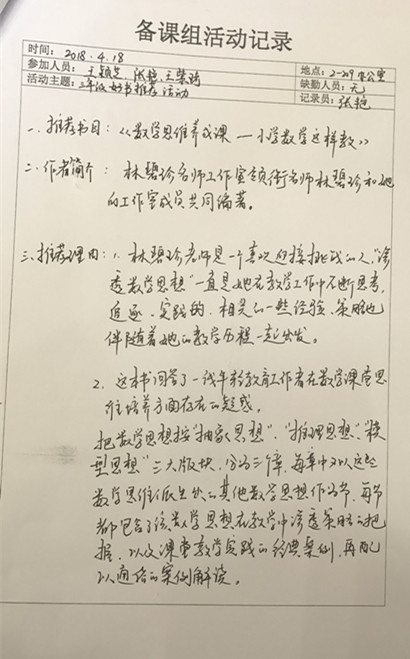 备课组活动记录
时间：2018.4.18
参加人员：王颖芝 张艳 王紫琦 地点：2-209办公室
缺勤人员：无
活动主题：三年级好书推荐活动 记录员：张艳
一．推荐书目：《数学思维养成课——小学数学这样教》
二．作者简介：林碧珍名师工作室领衔名师林碧珍和她
的工作室成员共同编著。
三．推荐理由：1．林碧珍老师是一个喜欢迎接挑战的人，“渗
透数学思想”一直是她在教学工作中不断思考、
追逐、实践的，相关的一些经验、策略也
伴随着她的教学历程一起出发。
2．这本书回答了一线年轻教育工作者在数学课堂思
维培养方面存在的疑惑。
把数学思想按“抽象思想”、“推理思想”、“模
型思想”三大版块，分为三个章，每章中又以这些
数学思维派生出的其他数学思想作为节，每节
都包含了该数学思想在教学中渗透策略的把
握，以及课堂教学实践的经典案例，再配
以通俗的案例解读。